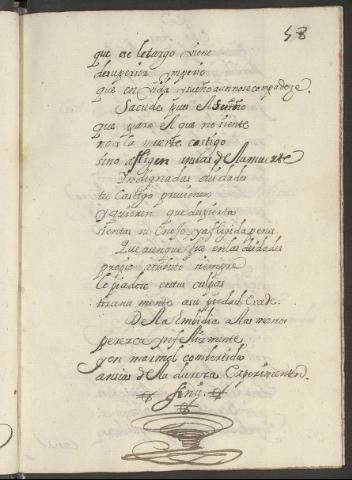 58
que ese letargo viene
de superior ymperio
que en vida y sueño aun no se compadeze.
Sacude pues el sueño
que para el que no siente
no es la muerte castigo
sino afligen ansias de la muerte
Yndignadas deidades
tu castigo previenen
y quieren que despierta
sientas su enojo y afligida penes.
Que aunque sea en las deidades
propio atributo siempre
lo piadoso en tus culpas
tirana mente a su piedad excede.
De la Embidia a las manos
perezca infelizmente
y en marmol combertida
ansias de la dureza experimente.
finis.